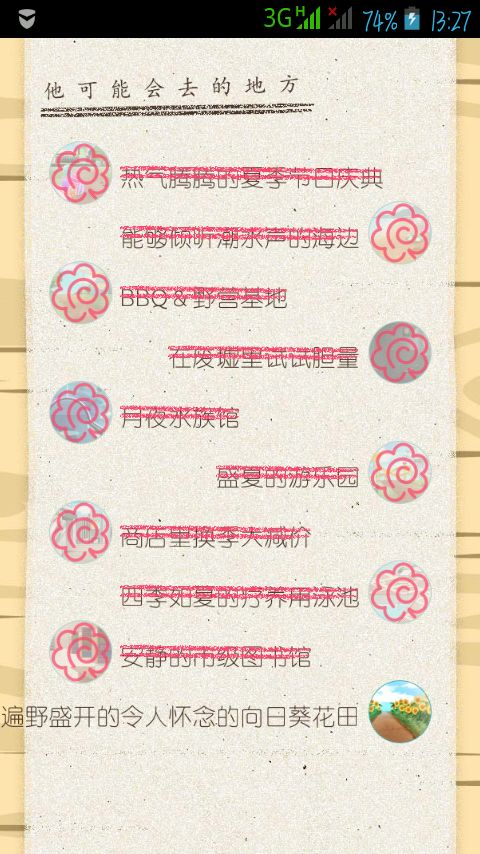 3G H 74% 13:27
他可能会去的地方
热气腾腾的夏季节日庆典
能够倾听潮水声的海边
BBQ & 野营基地
在废墟里试试胆量
月夜水族馆
盛夏的游乐园
商店里换季大减价
四季如夏的疗养用泳池
安静的市级图书馆
遍野盛开的令人怀念的向日葵花田